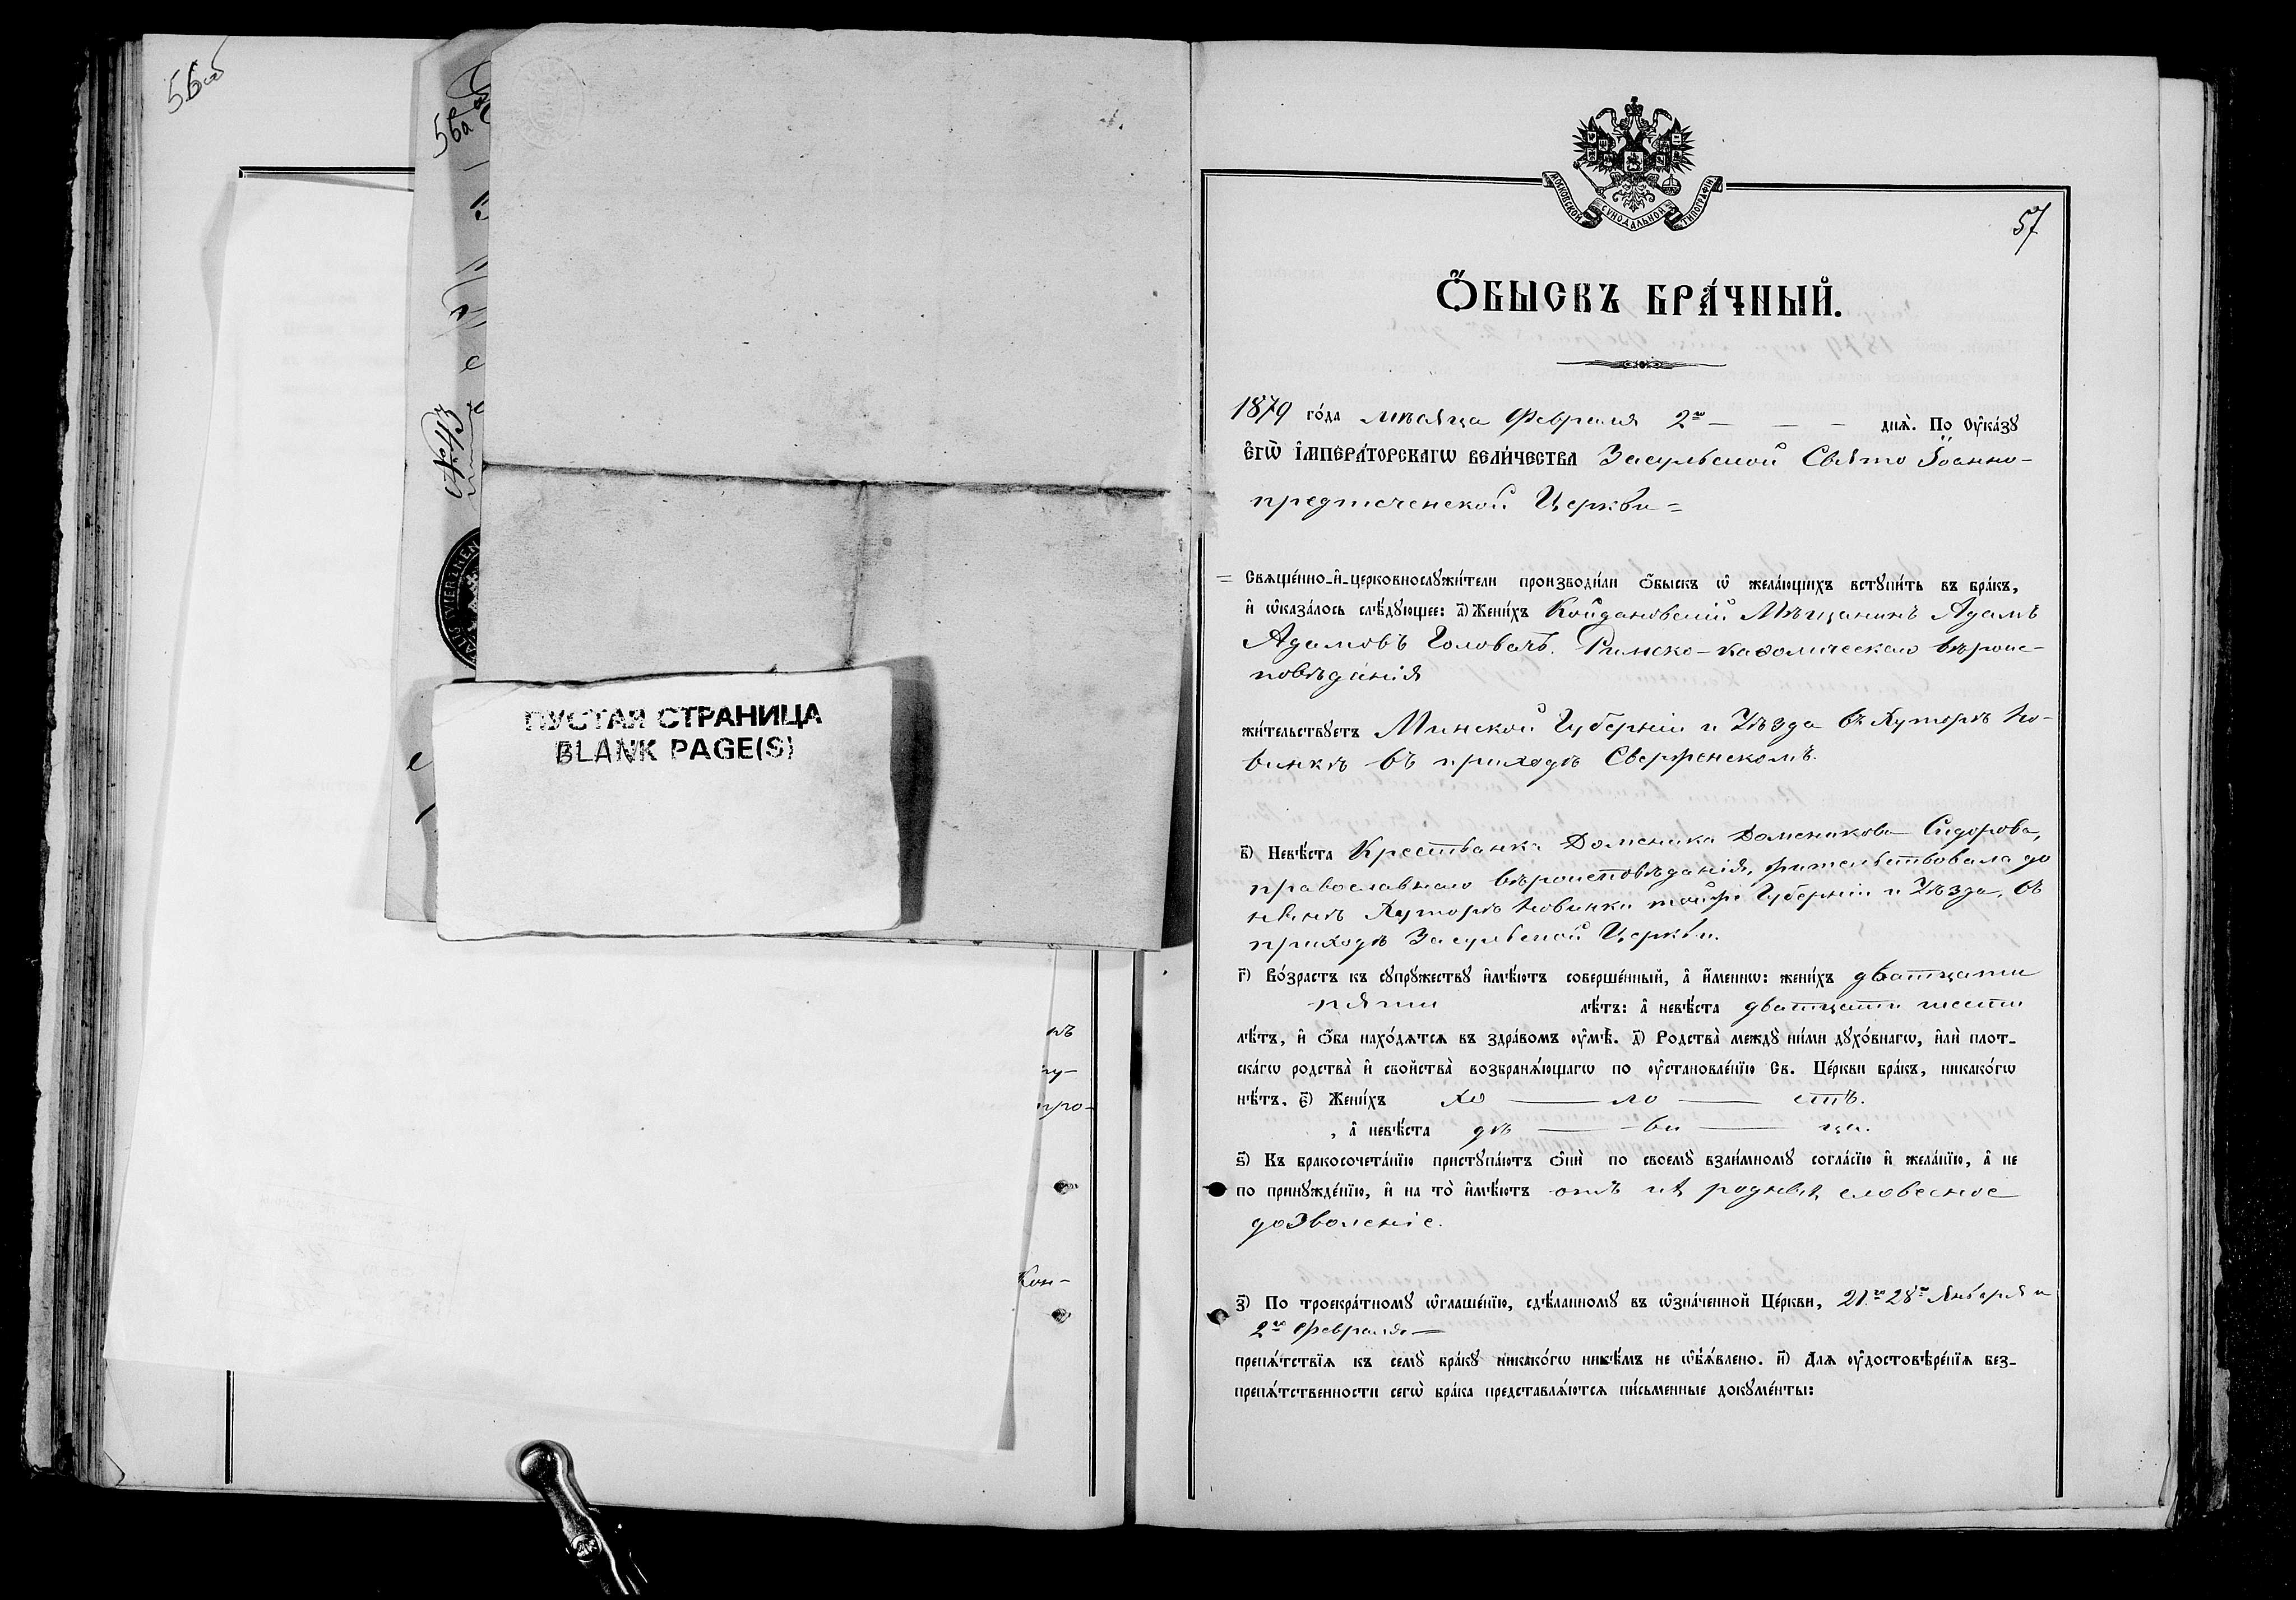 56об
56а
№43
ПУСТАЯ СТРАНИЦА
BLANK PAGE(S)
пу-
про-
Кон-
МОСКОВСКОЙ СѴНОДАЛЬНОЙ ТИПОГРАФІИ
57
Ѻ҆БЫСКЪ БРА́ЧНЫЙ.
1879 го́да мѣсяца Февраля 2го — — — днѧ̀. По ᲂу҆ка́зꙋ
Є҆ГѠ̀ І҆МПЕРА́ТОРСКАГѠ ВЕЛИ́ЧЕСТВА Засульской Свято Іоанно-
предтеченской Церкви=
= Свѧще́нно-и҆-церковнослꙋжи́тели производи́ли ѻ҆́быскъ ѡ҆ жела́ющихъ встꙋпи́ть въ бра́къ,
и҆ ѡ҆каза́лось слѣ́дꙋющее: а҃) Жени́хъ Койдановскій Мѣщанинъ Адамъ
Адамовъ Головачъ. Римско-каѳолическаго вѣроис-
повѣданія
жи́тельствꙋетъ Минской Губерніи и Уѣзда въ Хуторѣ Но-
винкѣ въ приходѣ Сверженскомъ.
в҃) Невѣ́ста Крестьянка Доменика Доменикова Сидорова,
православнаго вѣроисповѣданія, жительствовала до
нынѣ Хуторѣ Новинки той же Губерніи и Уѣзда, въ
приходѣ Засульской Церкви.
г҃) Во́зрастъ къ сꙋпрꙋ́жествꙋ и҆мѣ́ютъ соверше́нный, а҆ и҆́менно: жени́хъ дватцати
пяти лѣ́тъ: а҆ невѣ́ста дватцати шести
лѣ́тъ, и҆ ѻ҆́ба нахо́дѧтсѧ въ здра́вомъ ᲂу҆мѣ̀. д҃) Родства̀ междꙋ ни́ми дꙋхо́внагѡ, и҆лѝ плот-
ска́гѡ родства̀ и҆ свойства̀ возбранѧ́ющагѡ по ᲂу҆становле́нїю Св. Це́ркви бра́къ, никако́гѡ
нѣ́тъ. є҃) Жени́хъ хо — ло — стъ.
, а҆ невѣ́ста дѣ — ви — ца.
ѕ҃) Къ бракосочета́нїю пристꙋпа́ютъ ѻ҆нѝ по своемꙋ̀ взаи́мномꙋ согла́сїю и҆ жела́нїю, а҆ не
по принꙋжде́нїю, и҆ на то̀ и҆мѣ́ютъ отъ ихъ родныхъ словесное
дозволеніе.
з҃) По троекра́тномꙋ ѡ҆глаше́нїю, сдѣ́ланномꙋ въ ѡ҆зна́ченной Це́ркви, 21го 28го Января и
2го Февраля —
препѧ́тствїѧ къ семꙋ̀ бра́кꙋ никако́гѡ никѣ́мъ не ѡ҆б̾ѧ́влено. и҃) Длѧ ᲂу҆достовѣре́нїѧ без-
препѧ́тственности сегѡ̀ бра́ка представлѧ́ютсѧ пи́сьменные докꙋме́нты: